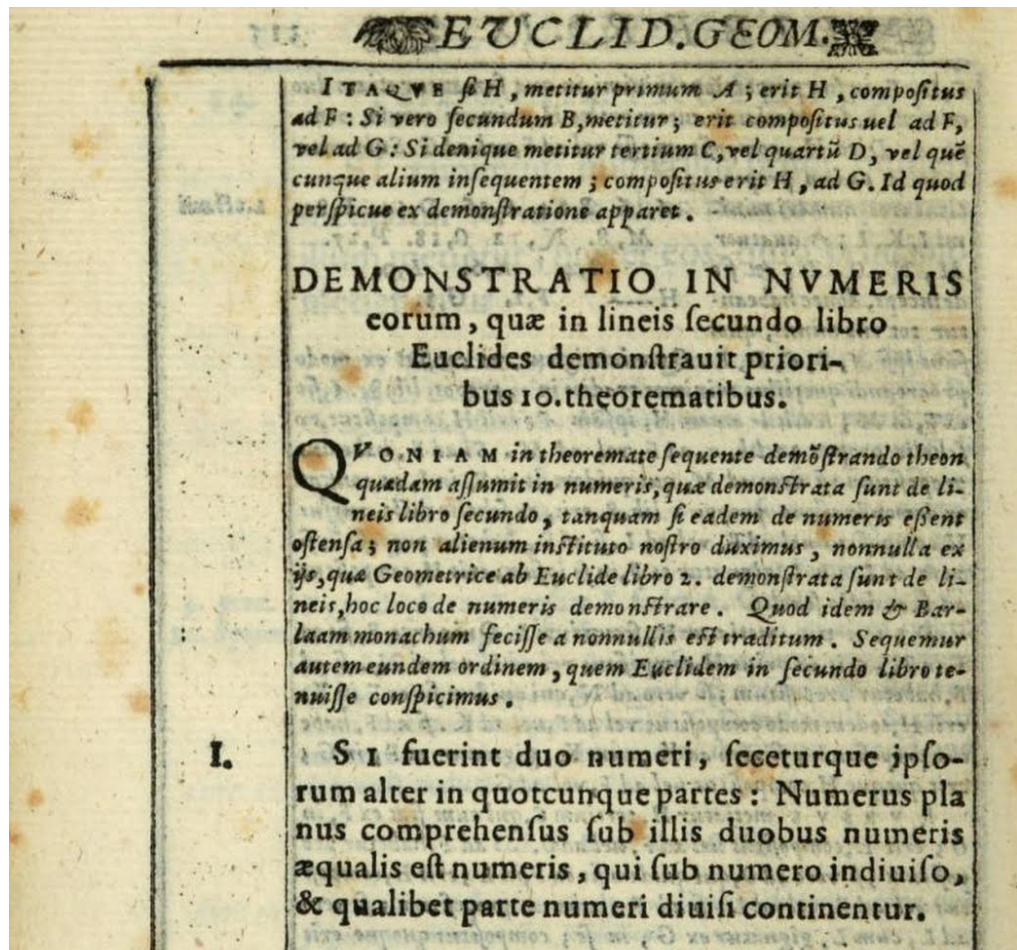 EVCLID. GEOM.
ITAQVE ſi H, metitur primum A; erit H, compoſitus
ad F: Si vero ſecundum B, metitur; erit compoſitus uel ad F,
vel ad G: Si denique metitur tertium C, vel quartū D, vel quē
cunque alium inſequentem; compoſitus erit H, ad G. Id quod
perſpicue ex demonſtratione apparet.
DEMONSTRATIO IN NVMERIS
eorum, quæ in lineis ſecundo libro
Euclides demonſtrauit priori-
bus 10. theorematibus.
QVONIAM in theoremate ſequente demōſtrando theon
quædam aſſumit in numeris, quæ demonſtrata ſunt de li-
neis libro ſecundo, tanquam ſi eadem de numeris eſſent
oſtenſa; non alienum inſtituto noſtro duximus, nonnulla ex
ijs, quæ Geometrice ab Euclide libro 2. demonſtrata ſunt de li-
neis, hoc loco de numeris demonſtrare. Quod idem & Bar-
laam monachum feciſſe a nonnullis eſt traditum. Sequemur
autem eundem ordinem, quem Euclidem in ſecundo libro te-
nuiſſe conſpicimus.
I. SI fuerint duo numeri, ſeceturque ipſo-
rum alter in quotcunque partes: Numerus pla
nus comprehenſus ſub illis duobus numeris
æqualis eſt numeris, qui ſub numero indiuiſo,
& qualibet parte numeri diuiſi continentur.